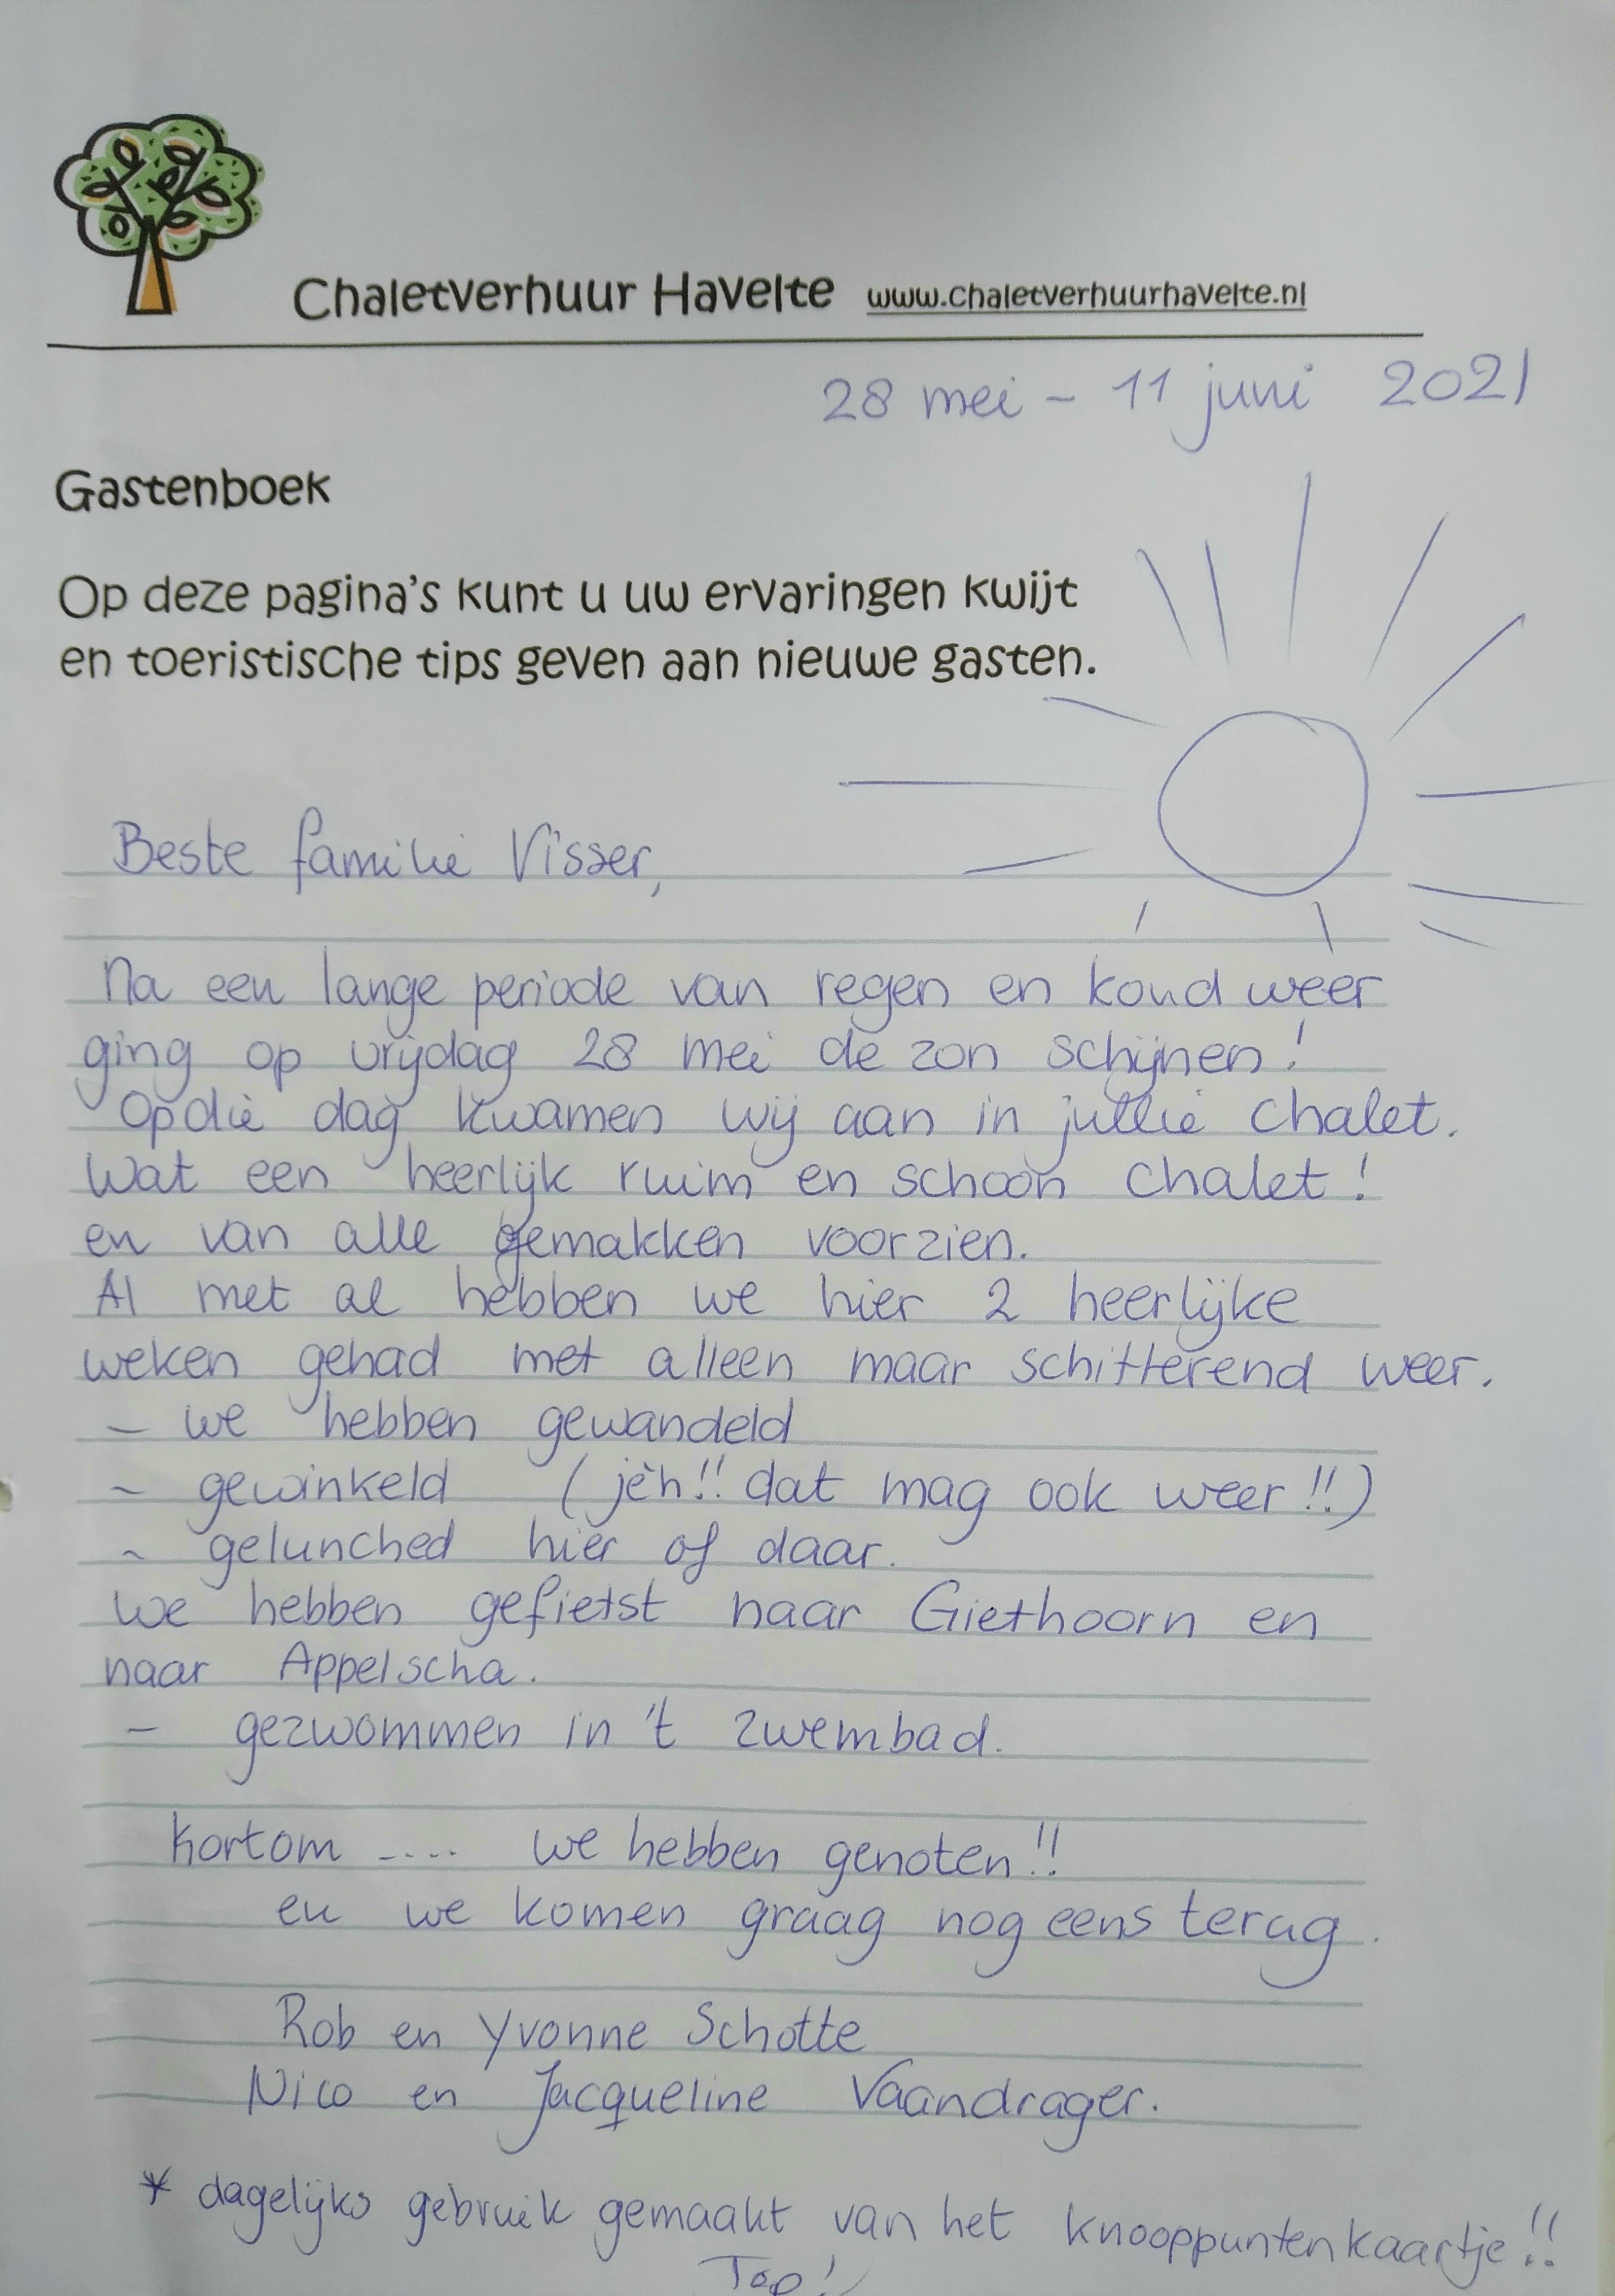 Chaletverhuur Havelte www.chaletverhuurhavelte.nl
28 mei - 11 juni 2021
Gastenboek
Op deze pagina's kunt u uw ervaringen kwijt
en toeristische tips geven aan nieuwe gasten.
Beste familie Visser,
Na een lange periode van regen en koud weer
ging op vrijdag 28 mei de zon schijnen!
Op die dag kwamen wij aan in jullie chalet.
Wat een heerlijk ruim en schoon chalet!
en van alle gemakken voorzien.
Al met al hebben we hier 2 heerlijke
weken gehad met alleen maar schitterend weer.
- we hebben gewandeld
- gewinkeld (jèh!! dat mag ook weer!!)
- gelunched hier of daar.
we hebben gefietst naar Giethoorn en
naar Appelscha.
- gezwommen in 't zwembad.
kortom .... we hebben genoten!!
en we komen graag nog eens terug.
Rob en Yvonne Schotte
Nico en Jacqueline Vaandrager.
* dagelijks gebruik gemaakt van het knooppuntenkaartje!!
Top!